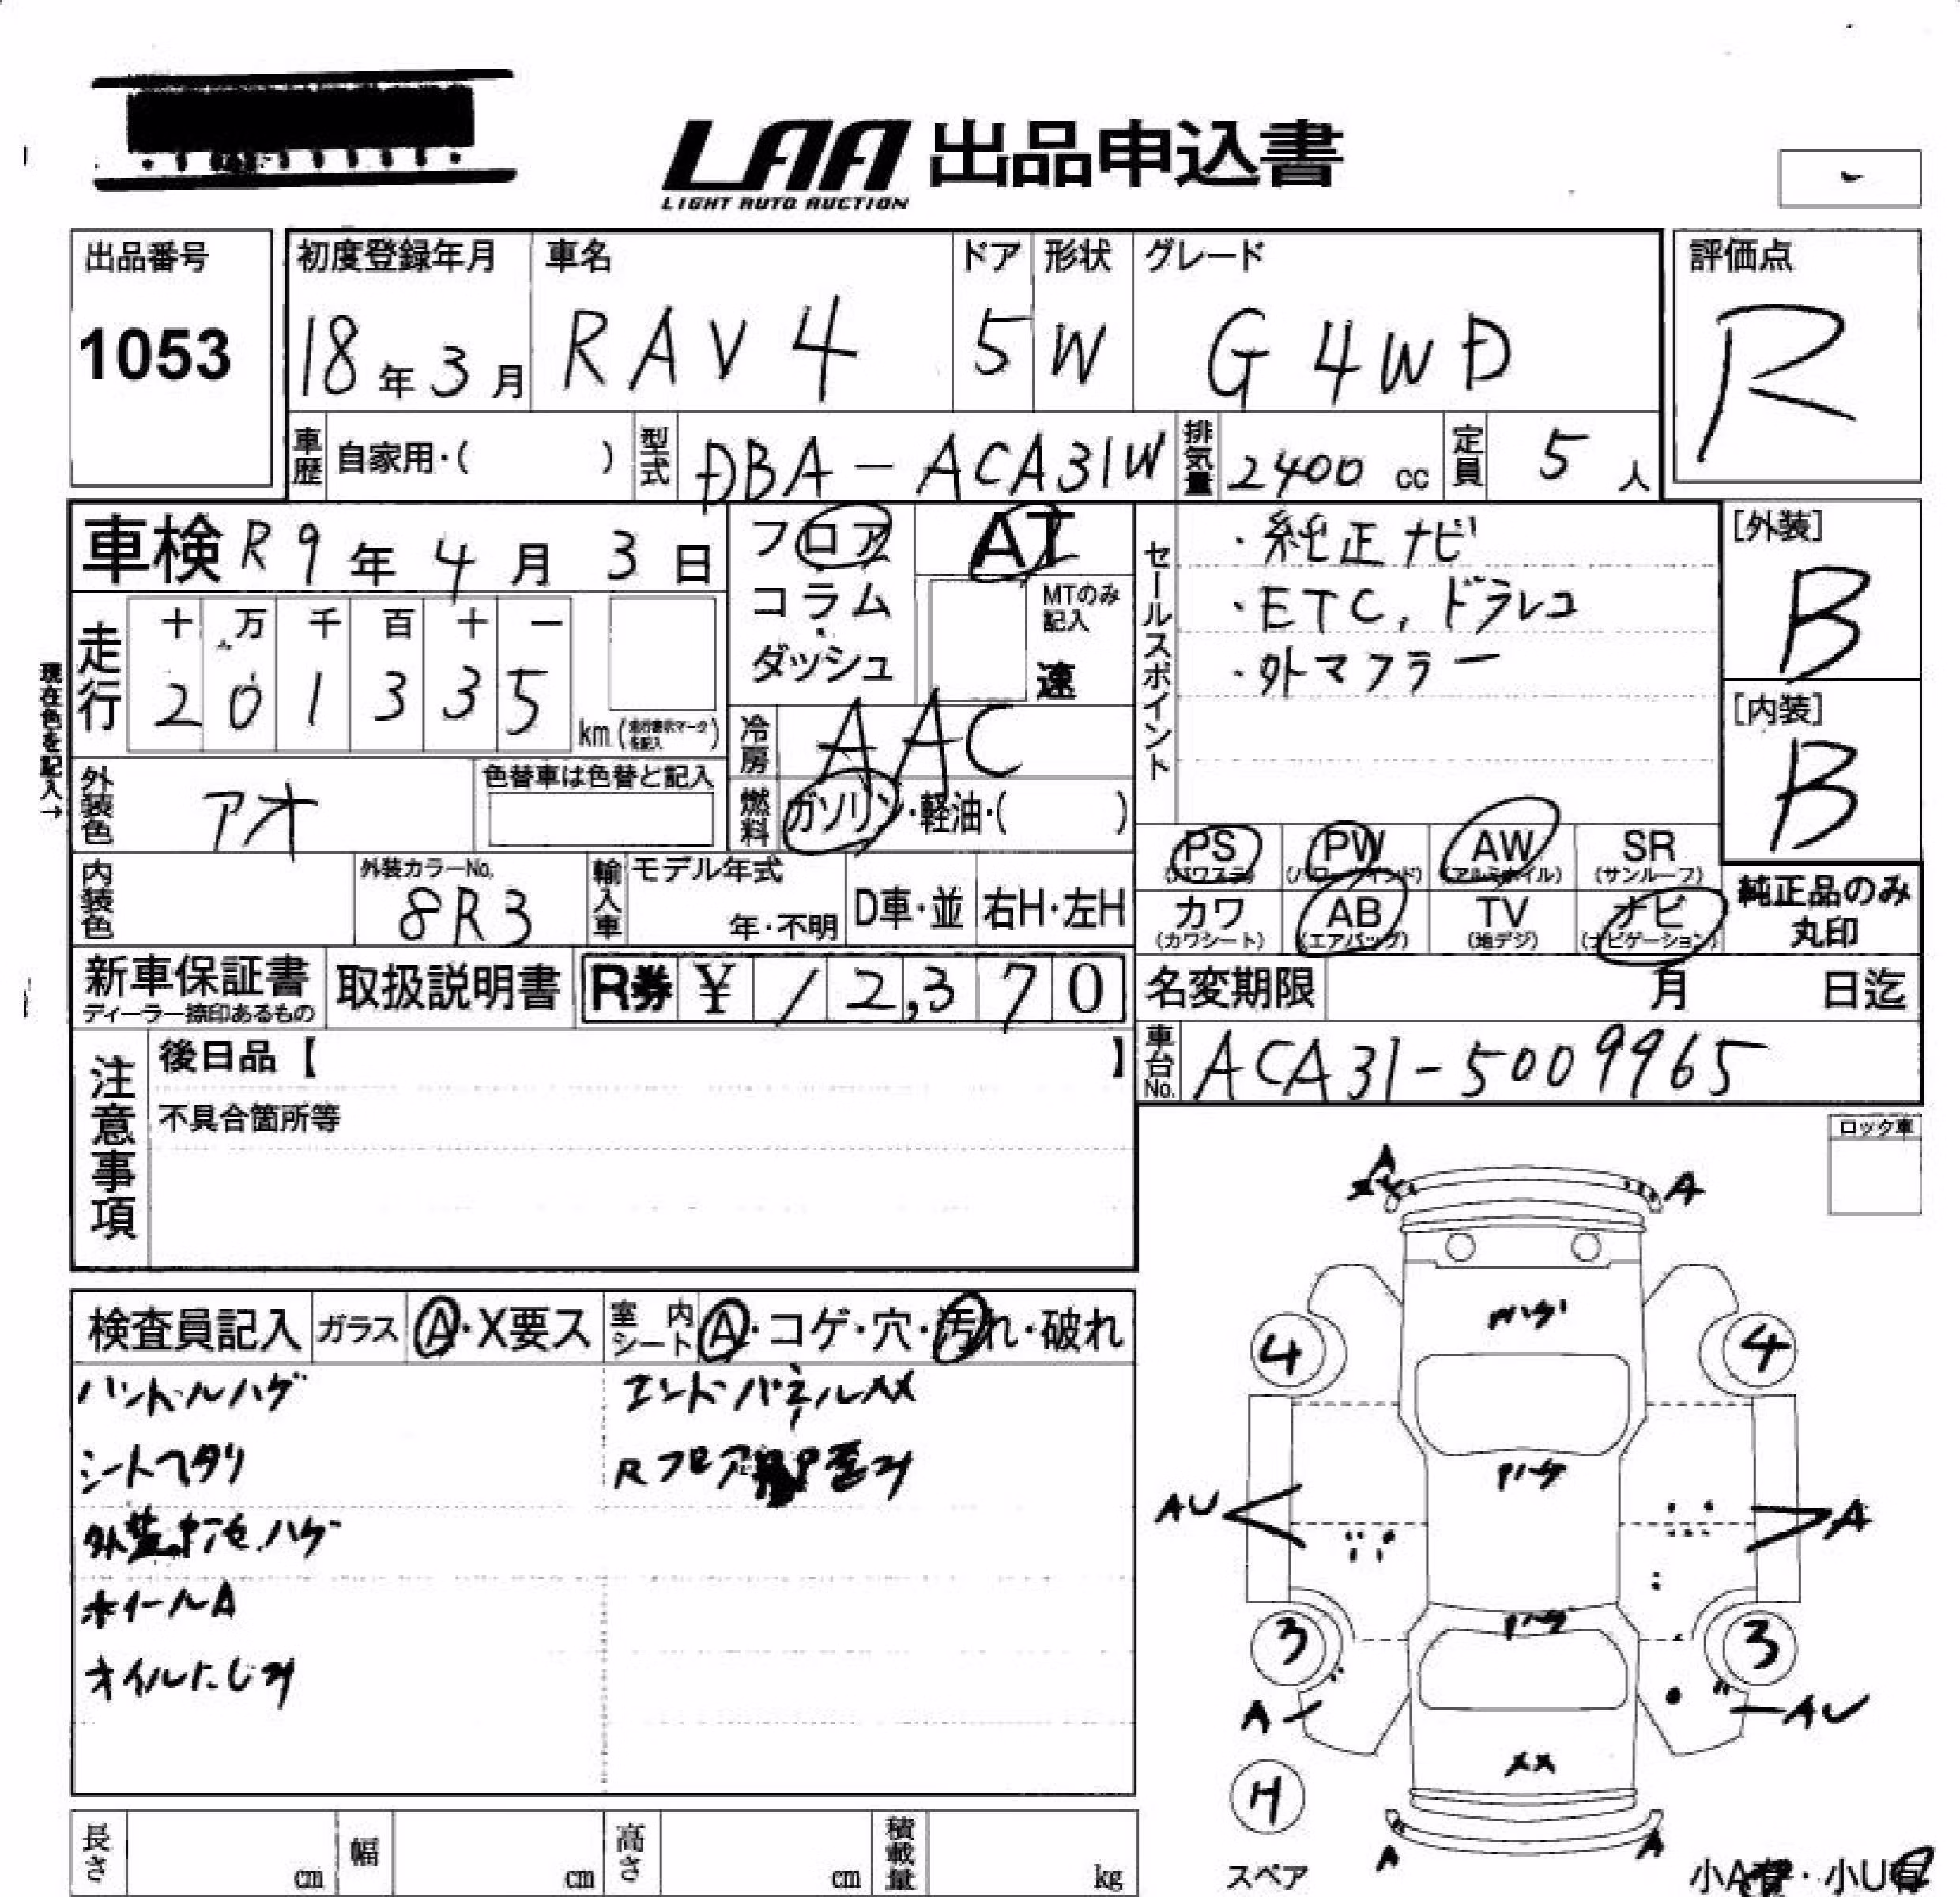 LAA 出品申込書
LIGHT AUTO AUCTION
出品番号
1053
初度登録年月
18年3月
車名
RAV4
ドア
5
形状
W
グレード
G 4WD
評価点
R
車歴
自家用・( )
型式
DBA-ACA31W
排気量
2400 cc
定員
5 人
車検 R9年4月3日
フロア
コラム
・
ダッシュ
AT
MTのみ
記入
速
セールスポイント
・純正ナビ
・ETC, ドラレコ
・外マフラー
[外装]
B
[内装]
B
現在色を記入→
走行
十 万 千 百 十 一
2 0 1 3 3 5
km (走行表示マークを記入)
冷房
AAC
燃料
ガソリン・軽油・( )
外装色
アオ
色替車は色替と記入
内装色
外装カラーNo.
8R3
輸入車
モデル年式
年・不明
D車・並
右H・左H
PS
(パワステ)
PW
(パワーウインド)
AW
(アルミホイル)
SR
(サンルーフ)
カワ
(カワシート)
AB
(エアバッグ)
TV
(地デジ)
ナビ
(ナビゲーション)
純正品のみ
丸印
新車保証書
ディーラー捺印あるもの
取扱説明書
R券 ¥ 12,370
名変期限 月 日迄
車台No.
ACA31-5009965
注意事項
後日品【 】
不具合箇所等
ロック車
検査員記入
ガラス
A・X要ス
室内
シート
A・コゲ・穴・汚れ・破れ
ハンドルハゲ
シートヘタリ
外装色ハゲ
ホイールA
オイルにじみ
エンドパネルXX
Rフロア歪み
A
A
ハゲ
4
4
ハゲ
AU
A
ハゲ
3
3
A
AU
XX
H
スペア
A
A
小A・小U有
長さ cm
幅 cm
高さ cm
積載量 kg